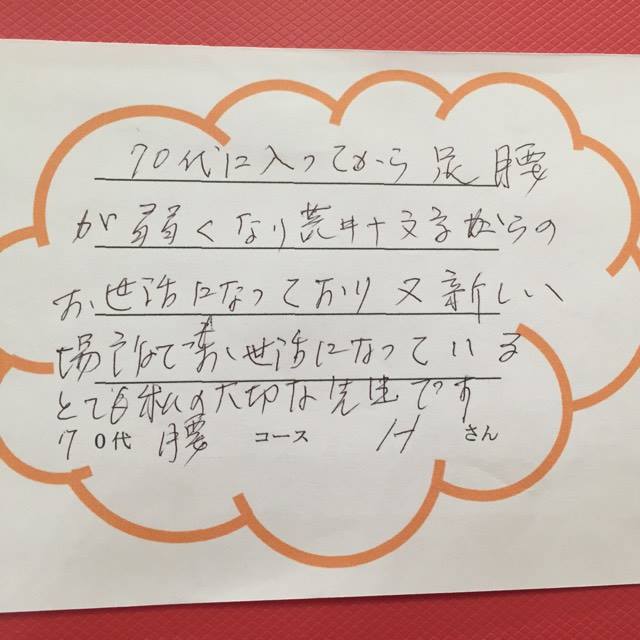 70代に入ってから足腰
が弱くなり荒井十文字からの
お世話になっており又新しい
場所でお世話になっている
とても私の大切な先生です
70代 腰 コース H さん